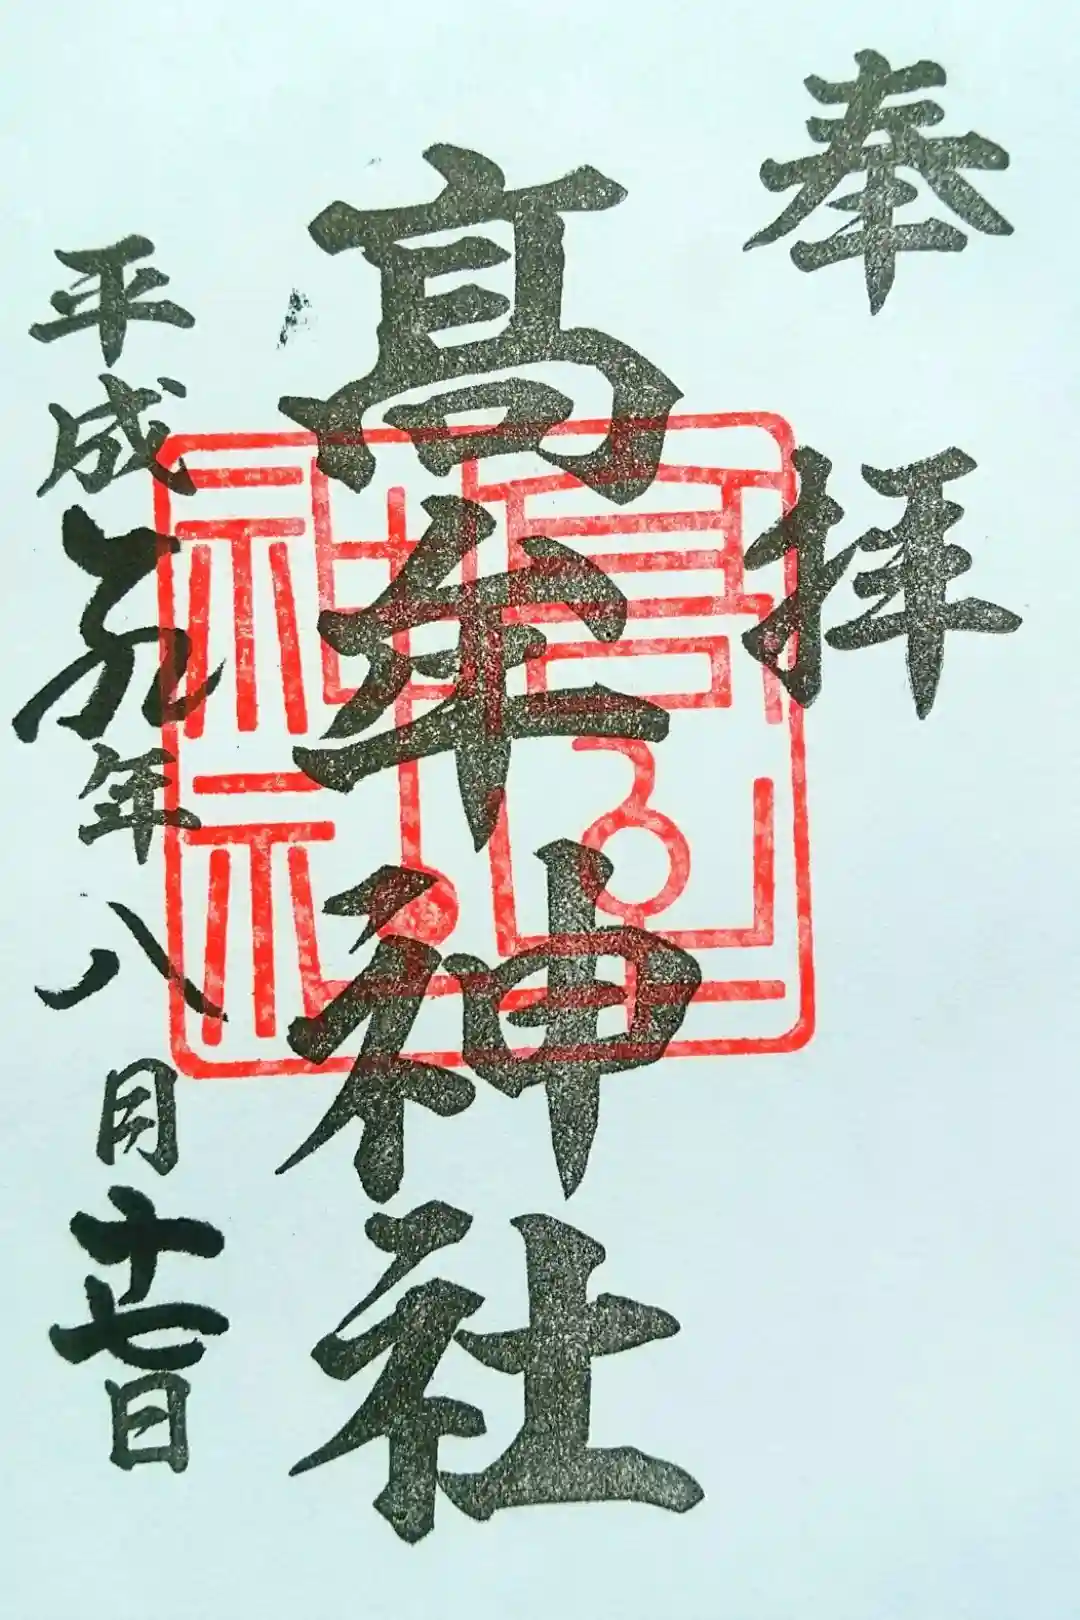 奉拝
髙牟神社
平成元年八月十七日
髙牟神社